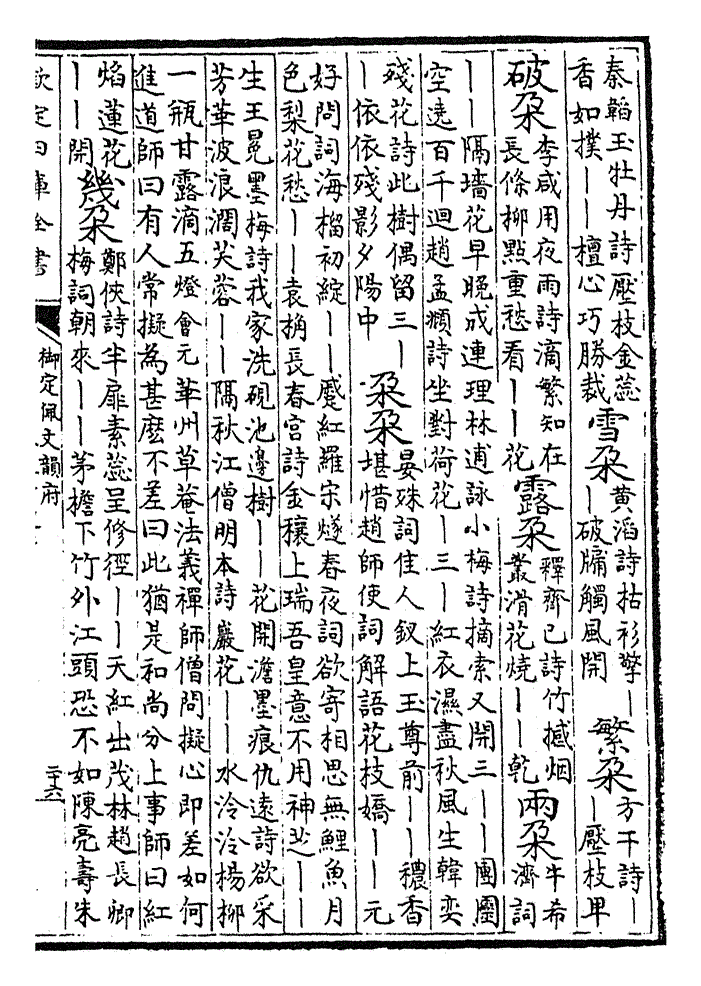 秦韜玉牡丹詩壓枝金蕊
香如撲——檀心巧勝裁
雪朵
黃滔詩拈衫擎—
—破牖觸風開
繁朵
方干詩—
—壓枝卑
破朵
李咸用夜雨詩滴繁知在
長條柳點重愁看——花
露朵
釋齊己詩竹撼烟
叢滑花燒——乾
兩朵
牛希
濟詞
——隔墻花早晚成連理林逋詠小梅詩摘索又開三——團團
空遶百千迴趙孟頫詩坐對荷花—三—紅衣濕盡秋風生韓奕
殘花詩此樹偶留三—
—依依殘影夕陽中
朵朵
晏殊詞佳人釵上玉尊前——穠香
堪惜趙師使詞解語花枝嬌——元
好問詞海榴初綻——蹙紅羅宋燧春夜詞欲寄相思無鯉魚月
色梨花愁——袁桷長春宮詩金穰上瑞吾皇意不用神芝——
生王冕墨梅詩我家洗硯池邊樹——花開澹墨痕仇遠詩欲采
芳華波浪濶芙蓉——隔秋江僧明本詩巖花——水泠泠楊柳
一瓶甘露滴五燈會元華州草菴法義禪師僧問擬心即差如何
進道師曰有人常擬為甚麽不差曰此猶是和尚分上事師曰紅
焰蓮花
——開
幾朵
鄭俠詩半扉素蕊呈修徑——天紅出茂林趙長卿
梅詞朝來——茅檐下竹外江頭恐不如陳亮壽朱
欽定四庫全書
御定佩文韻府
二十六